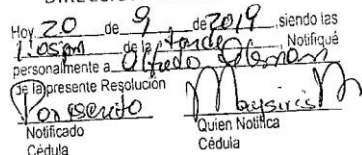 Hoy 20 de 9 de 2019 siendo las
1:05pm de la tarde, Notifiqué
personalmente a Alfredo Aleman
de la presente Resolución
Por escrito Maysiris M
Notificado Quien Notifica
Cédula Cédula